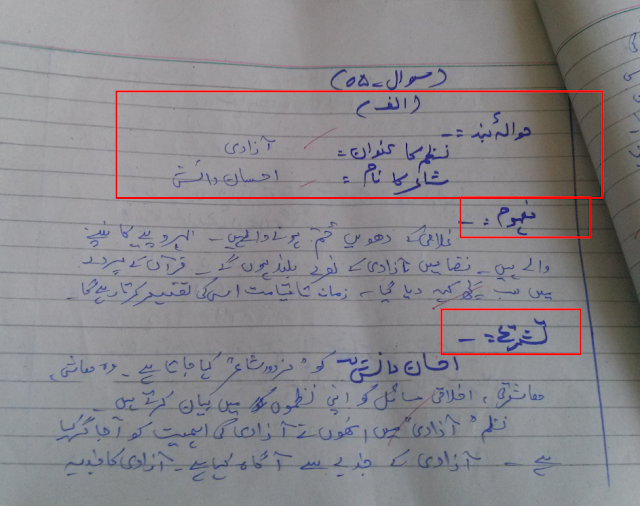 (سوال-۵)
(الف)
حوالۂ بند :-
نظم کا عنوان: آزادی
شاعر کا نام: احسان دانش
مفہوم :-
غلامی کے دھویں ختم ہونے والے ہیں۔
والے ہیں۔ فضا میں آزادی کے نعرے بلند ہوں گے۔ قرآن کے پردے
میں سب کچھ کہہ دیا گیا۔ زمانہ تا قیامت اسی کی تفسیر کرتا رہے گا۔
تشریح :-
احسان دانش کو "مزدور شاعر" کہا جاتا ہے۔ وہ معاشی،
معاشرتی، اخلاقی مسائل کو اپنی نظموں میں بیان کرتے ہیں۔
نظم "آزادی" میں انھوں نے آزادی کی اہمیت کو اجاگر کیا
ہے۔ آزادی کے جذبے سے آگاہ کیا ہے۔ آزادی کا جذبہ